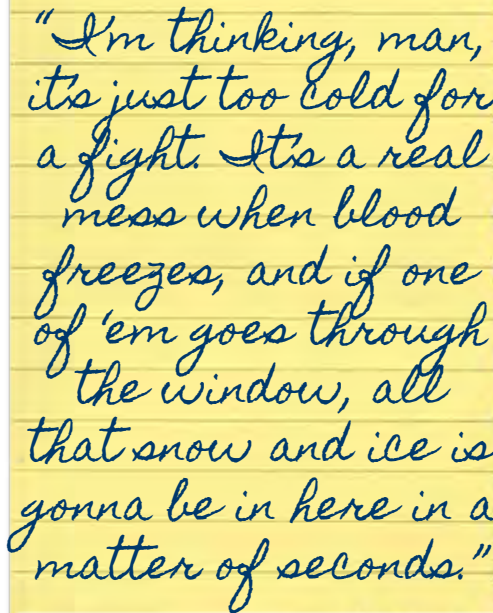 "I'm thinking, man,
it's just too cold for
a fight. It's a real
mess when blood
freezes, and if one
of 'em goes through
the window, all
that snow and ice is
gonna be in here in a
matter of seconds."